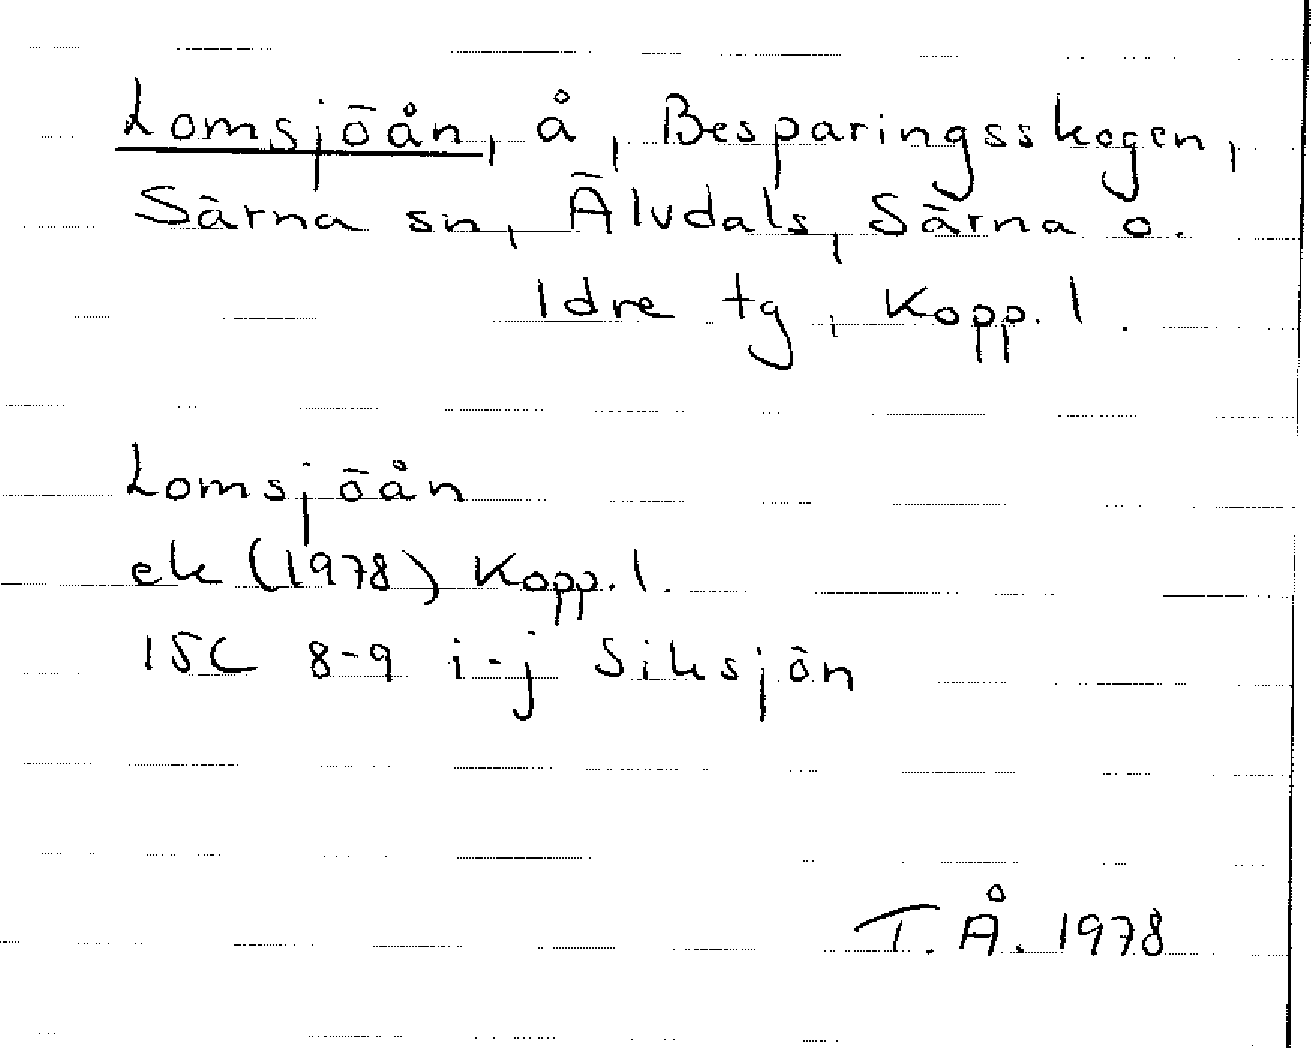 Lomsjöån, å, Besparingsskogen,
Särna sn, Älvdals, Särna o.
Idre tg, Kopp. l.
Lomsjöån
ek (1978) Kopp. l.
15C 8-9 i-j Siksjön
T. Å. 1978